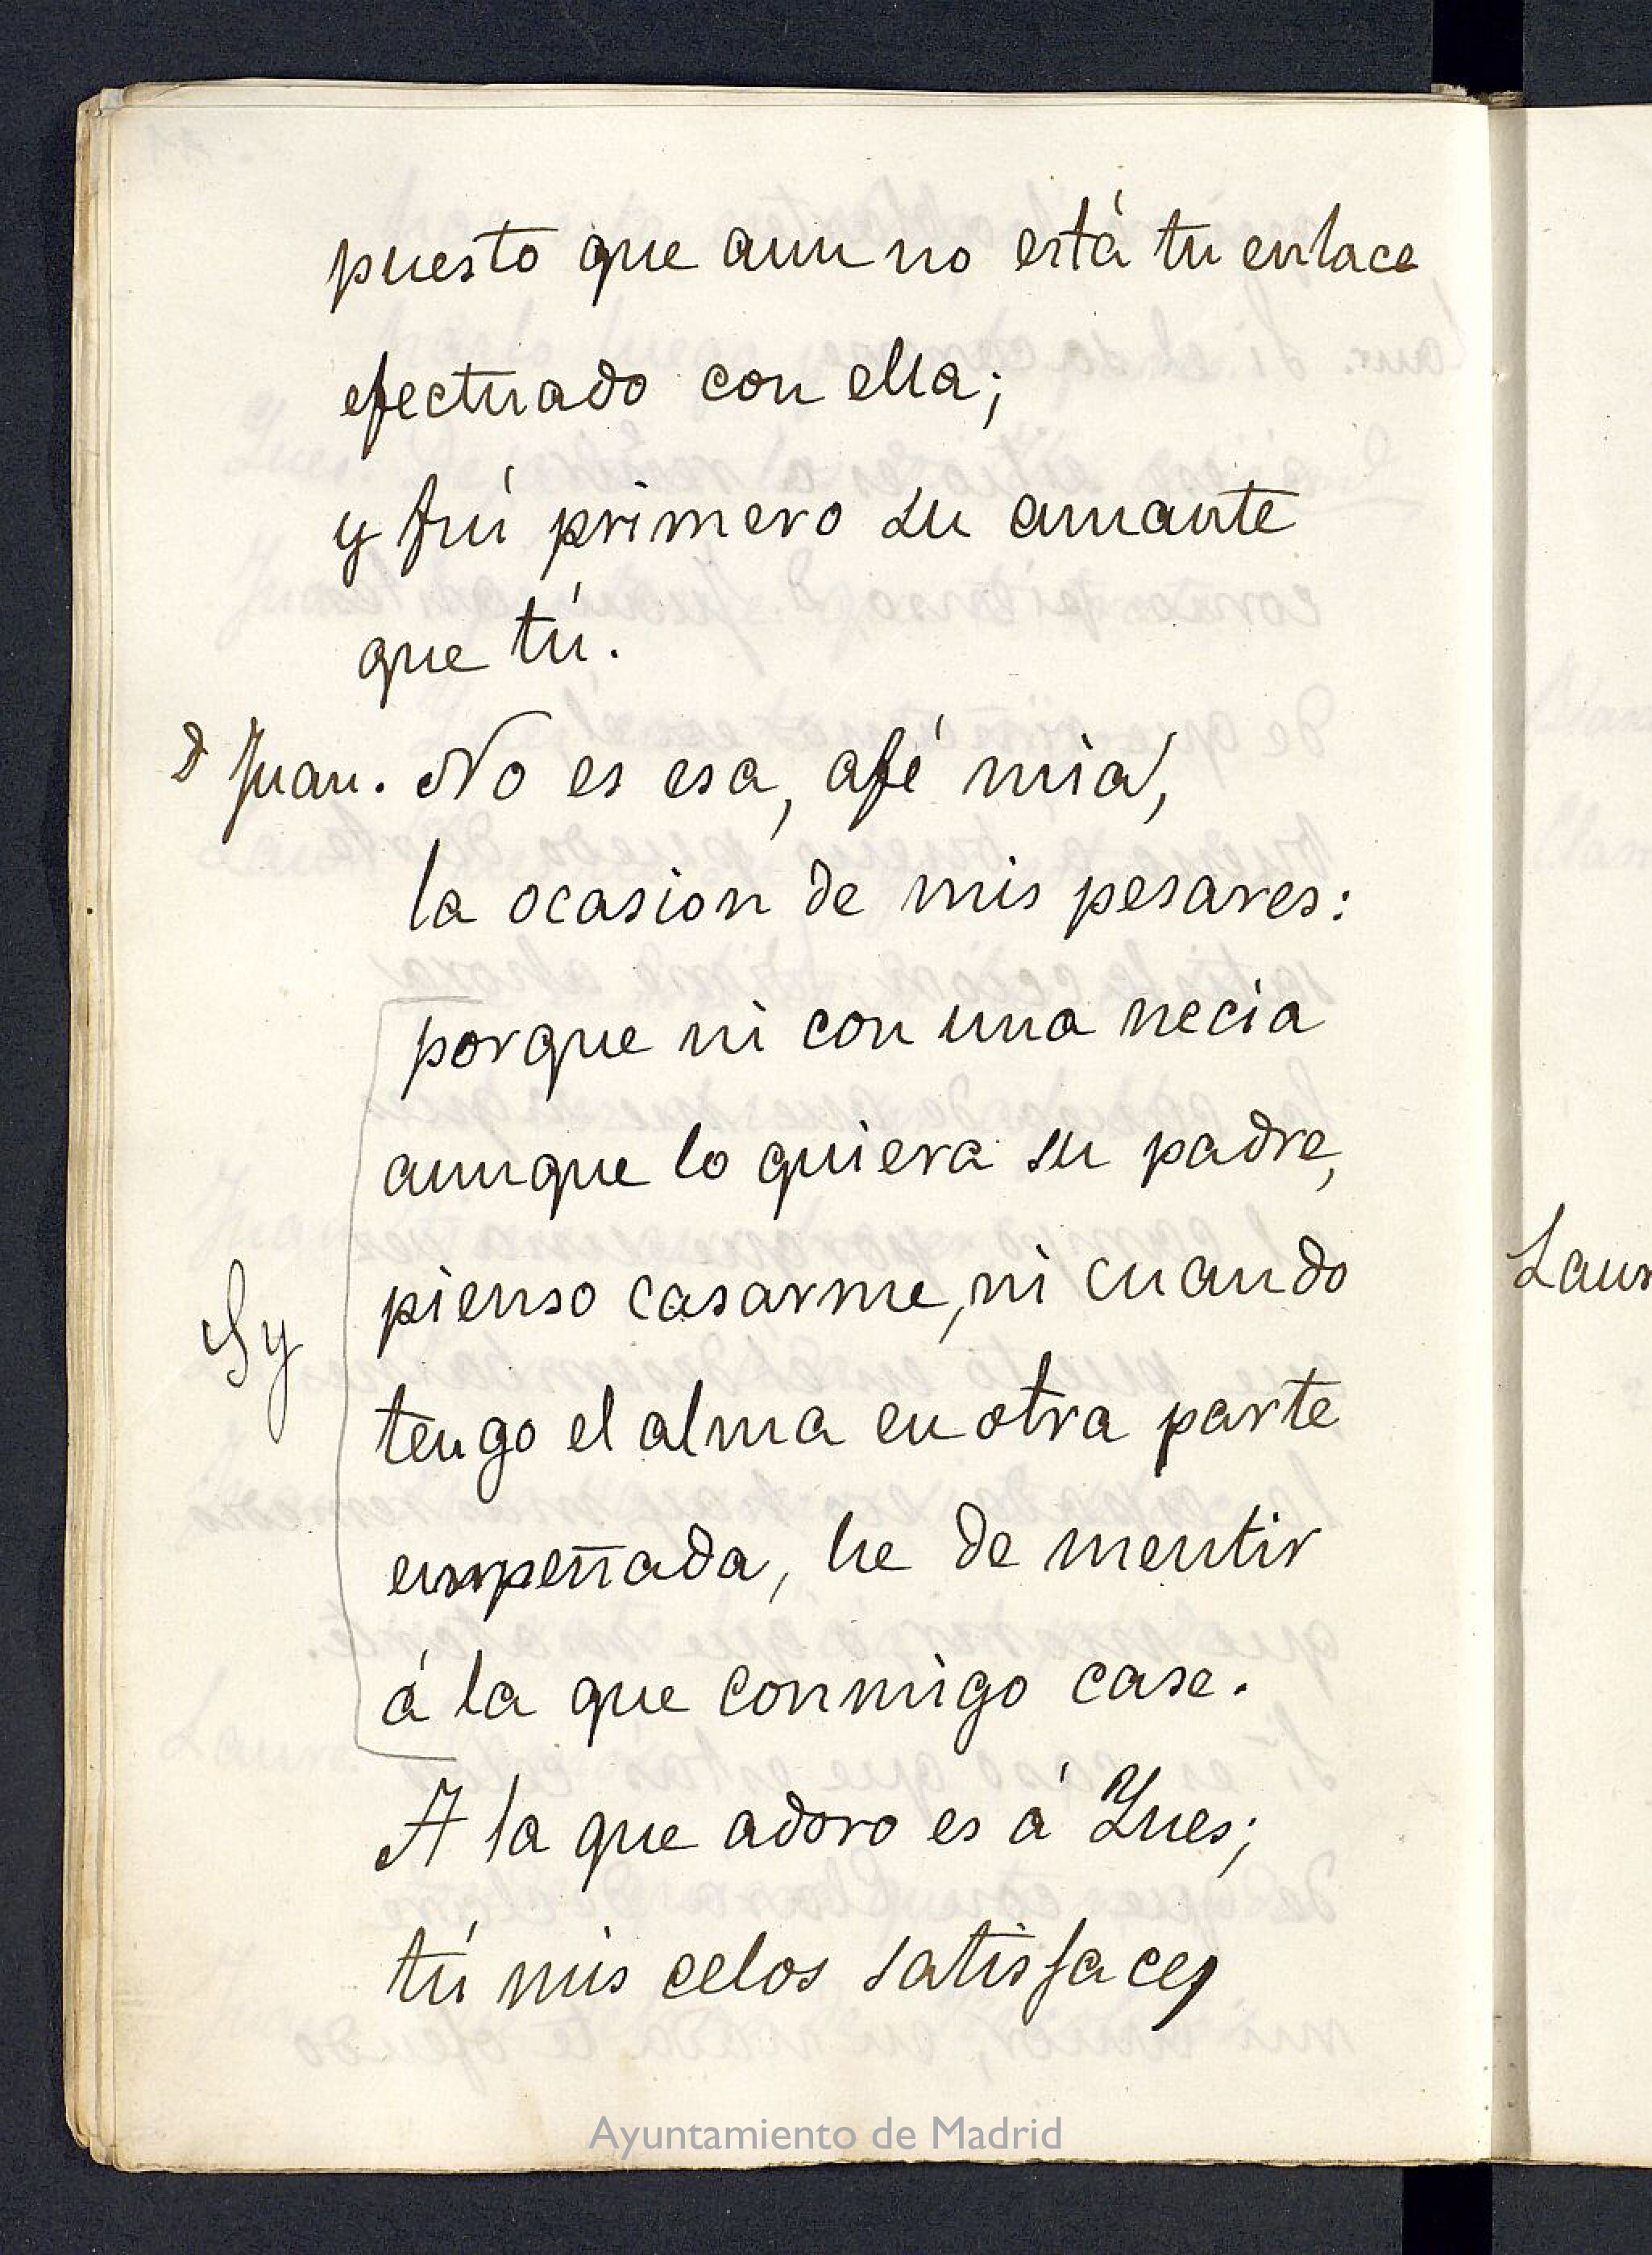 puesto que aun no está tu enlace
efectuado con ella;
y fuí primero su amante
que tú.
D Juan. No es esa, afé mia,
la ocasion de mis pesares:
porque ni con una necia
aunque lo quiera su padre,
pienso casarme, ni cuando
Sy
tengo el alma en otra parte
empeñada, he de mentir
á la que conmigo case.
A la que adoro es á Ynes;
tú mis celos satisfaces
Laur
Ayuntamiento de Madrid